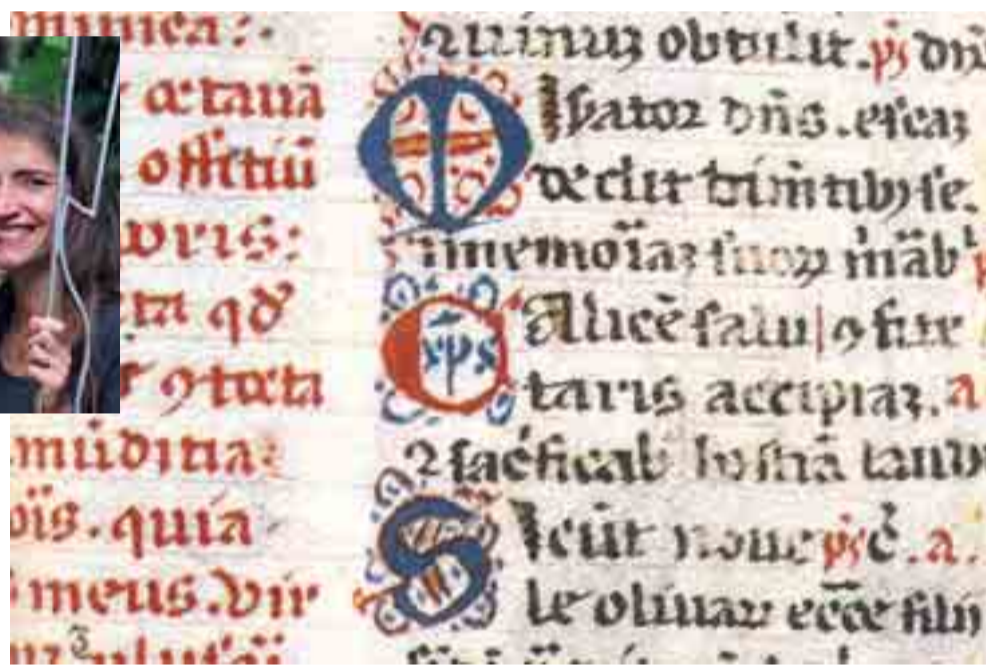 minica:.
octauā
offitiū
oris:
ta qđ
r ꝯtecta
mūditia:
ois. quia
meus. Vir
uinuȝ obtulit. ps dn̄i
Miẜator dn̄s. escaȝ
dedit timētibȝ se.
in memoīaȝ suoꝝ mi̇ab'
Calicē salu| ꝯfite
taris accipiaȝ. a
⁊ sac̓ficab' hostiā laud
Sicut noue ps c̄. a.
le oliuaꝝ ecce filij